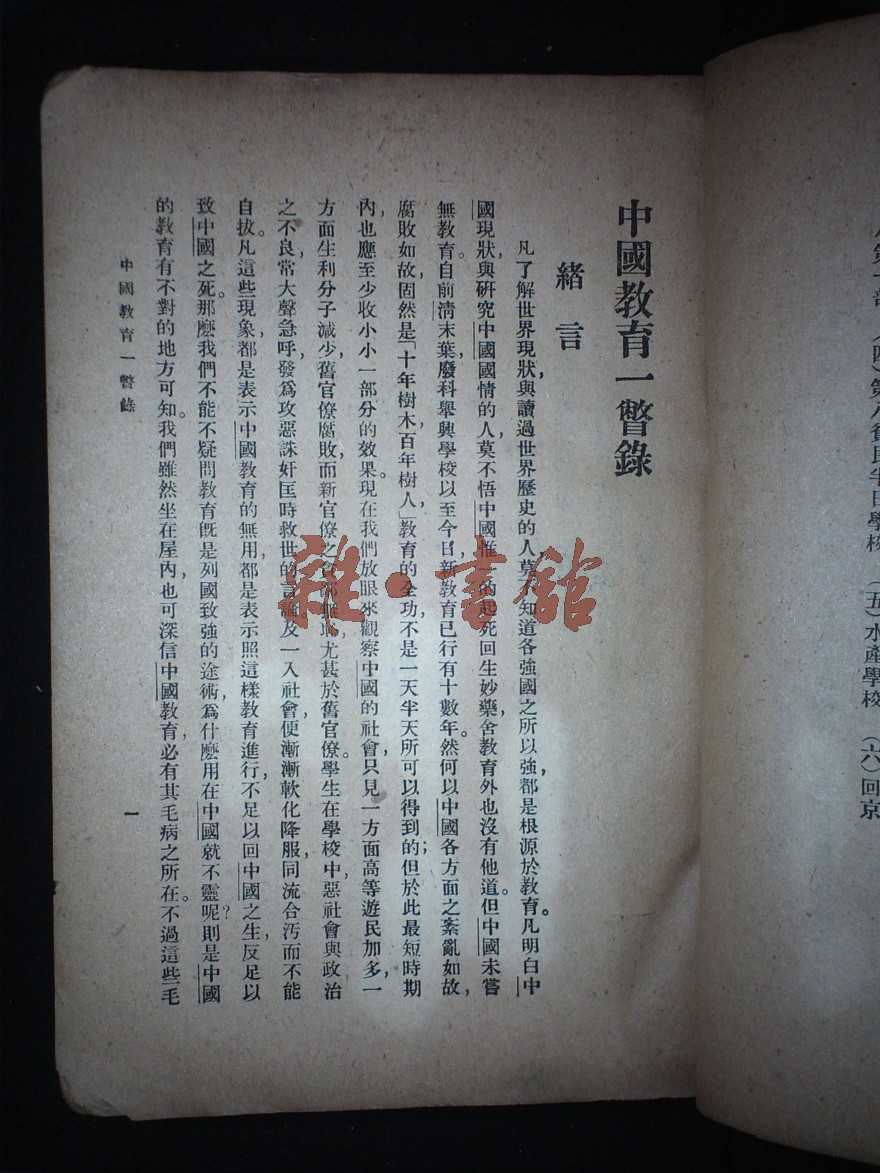 中國教育一瞥錄
緒言
凡了解世界現狀,與讀過世界歷史的人,莫不知道各強國之所以強,都是根源於教育。凡明白中
國現狀,與研究中國國情的人,莫不悟中國惟一的起死回生妙藥,舍教育外也沒有他道。但中國未嘗
無教育。自前淸末葉,廢科舉,興學校以至今日,新教育已行有十數年。然何以中國各方面之紊亂如故,
腐敗如故,固然是「十年樹木,百年樹人」,教育的全功,不是一天半天所可以得到的;但於此最短時期
內,也應至少收小小一部分的效果。現在我們放眼來觀察中國的社會,只見一方面高等遊民加多,一
方面生利分子減少,舊官僚腐敗,而新官僚之貪鄙無恥,尤甚於舊官僚。學生在學校中,惡社會與政治
之不良,常大聲急呼,發爲攻惡誅奸,匡時救世的言論。及一入社會,便漸漸軟化降服,同流合汚而不能
自拔。凡這些現象,都是表示中國教育的無用,都是表示照這樣教育進行,不足以回中國之生,反足以
致中國之死。那麽我們不能不疑問教育旣是列國致強的途術,爲什麽用在中國就不靈呢?則是中國
的教育有不對的地方可知。我們雖然坐在屋內,也可深信中國教育,必有其毛病之所在。不過這些毛
中國教育一瞥錄
一
第八貧民半日學校 (五)水產學校 (六)回京
雜·書館